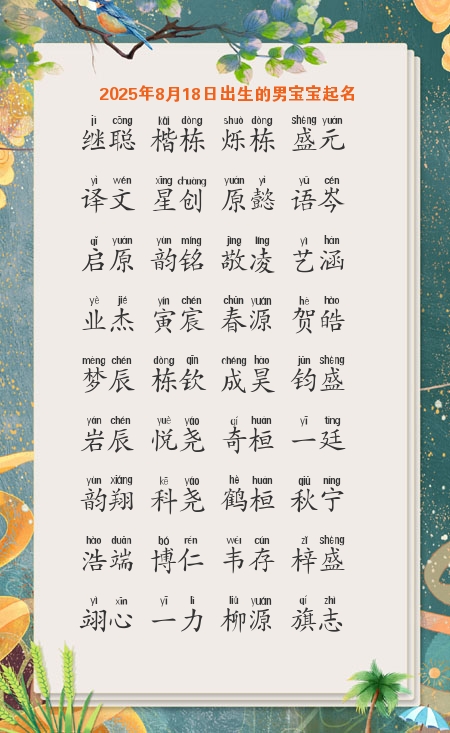 2025年8月18日出生的男宝宝起名
jì cōng kǎi dòng shuò dòng shèng yuán
继聪 楷栋 烁栋 盛元
yì wén xīng chuàng yuán yì yǔ cén
译文 星创 原懿 语岑
qǐ yuán yùn míng jìng líng yì hán
启原 韵铭 敬凌 艺涵
yè jié yín chén chūn yuán hè hào
业杰 寅宸 春源 贺皓
mèng chén dòng qīn chéng hào jūn shèng
梦辰 栋钦 成昊 钧盛
yán chén yuè yáo qí huán yī tíng
岩辰 悦尧 奇桓 一廷
yùn xiáng kē yáo hè huán qiū níng
韵翔 科尧 鹤桓 秋宁
hào duān bó rén wéi cún zǐ shèng
浩端 博仁 韦存 梓盛
yì xīn yī lì liǔ yuán qí zhì
翊心 一力 柳源 旗志